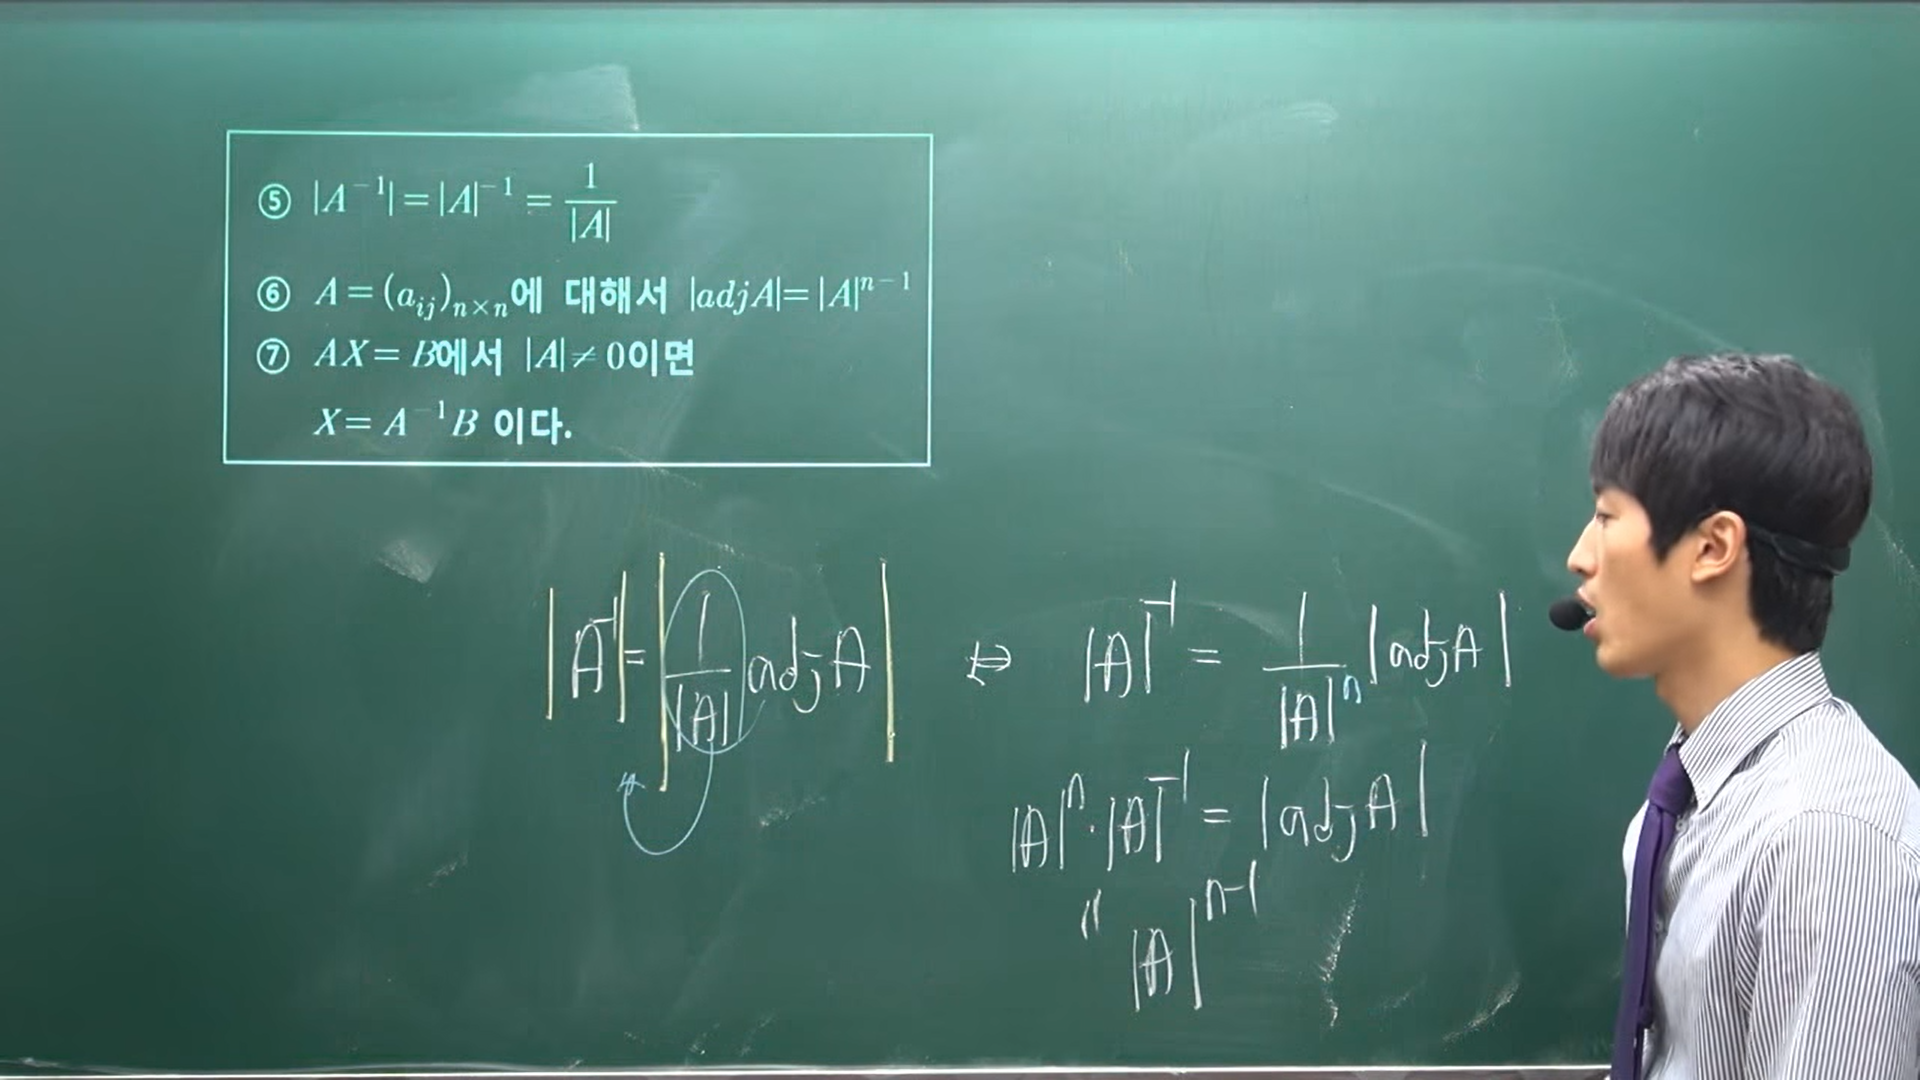 ⑤ |A⁻¹| = |A|⁻¹ = 1/|A|
⑥ A = (aᵢⱼ)ₙ×ₙ에 대해서 |adjA| = |A|ⁿ⁻¹
⑦ AX = B에서 |A| ≠ 0이면
X = A⁻¹B 이다.
|A⁻¹| = |1/|A| adjA| ⇔ |A|⁻¹ = 1/|A|ⁿ |adjA|
|A|ⁿ · |A|⁻¹ = |adjA|
〃 |A|ⁿ⁻¹